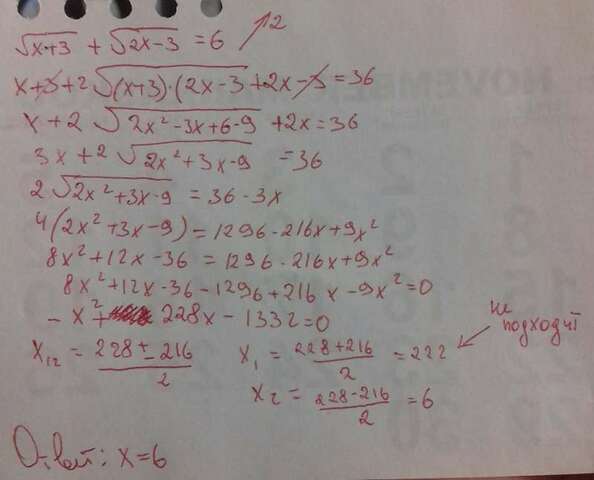 √x+3 + √2x-3 = 6 ↑2
x+3+2√(x+3)·(2x-3 +2x-3=36
x+2 √2x²-3x+6-9 +2x=36
3x+2√2x²+3x-9 =36
2√2x²+3x-9 = 36-3x
4(2x²+3x-9)=1296-216x+9x²
8x²+12x-36 = 1296-216x+9x²
8x²+12x-36-1296+216x-9x²=0
-x²+ 228x-1332=0
не подходит
x₁₂ = 228±216/2 x₁ = 228+216/2 =222
x₂ = 228-216/2 =6
Ответ: x=6